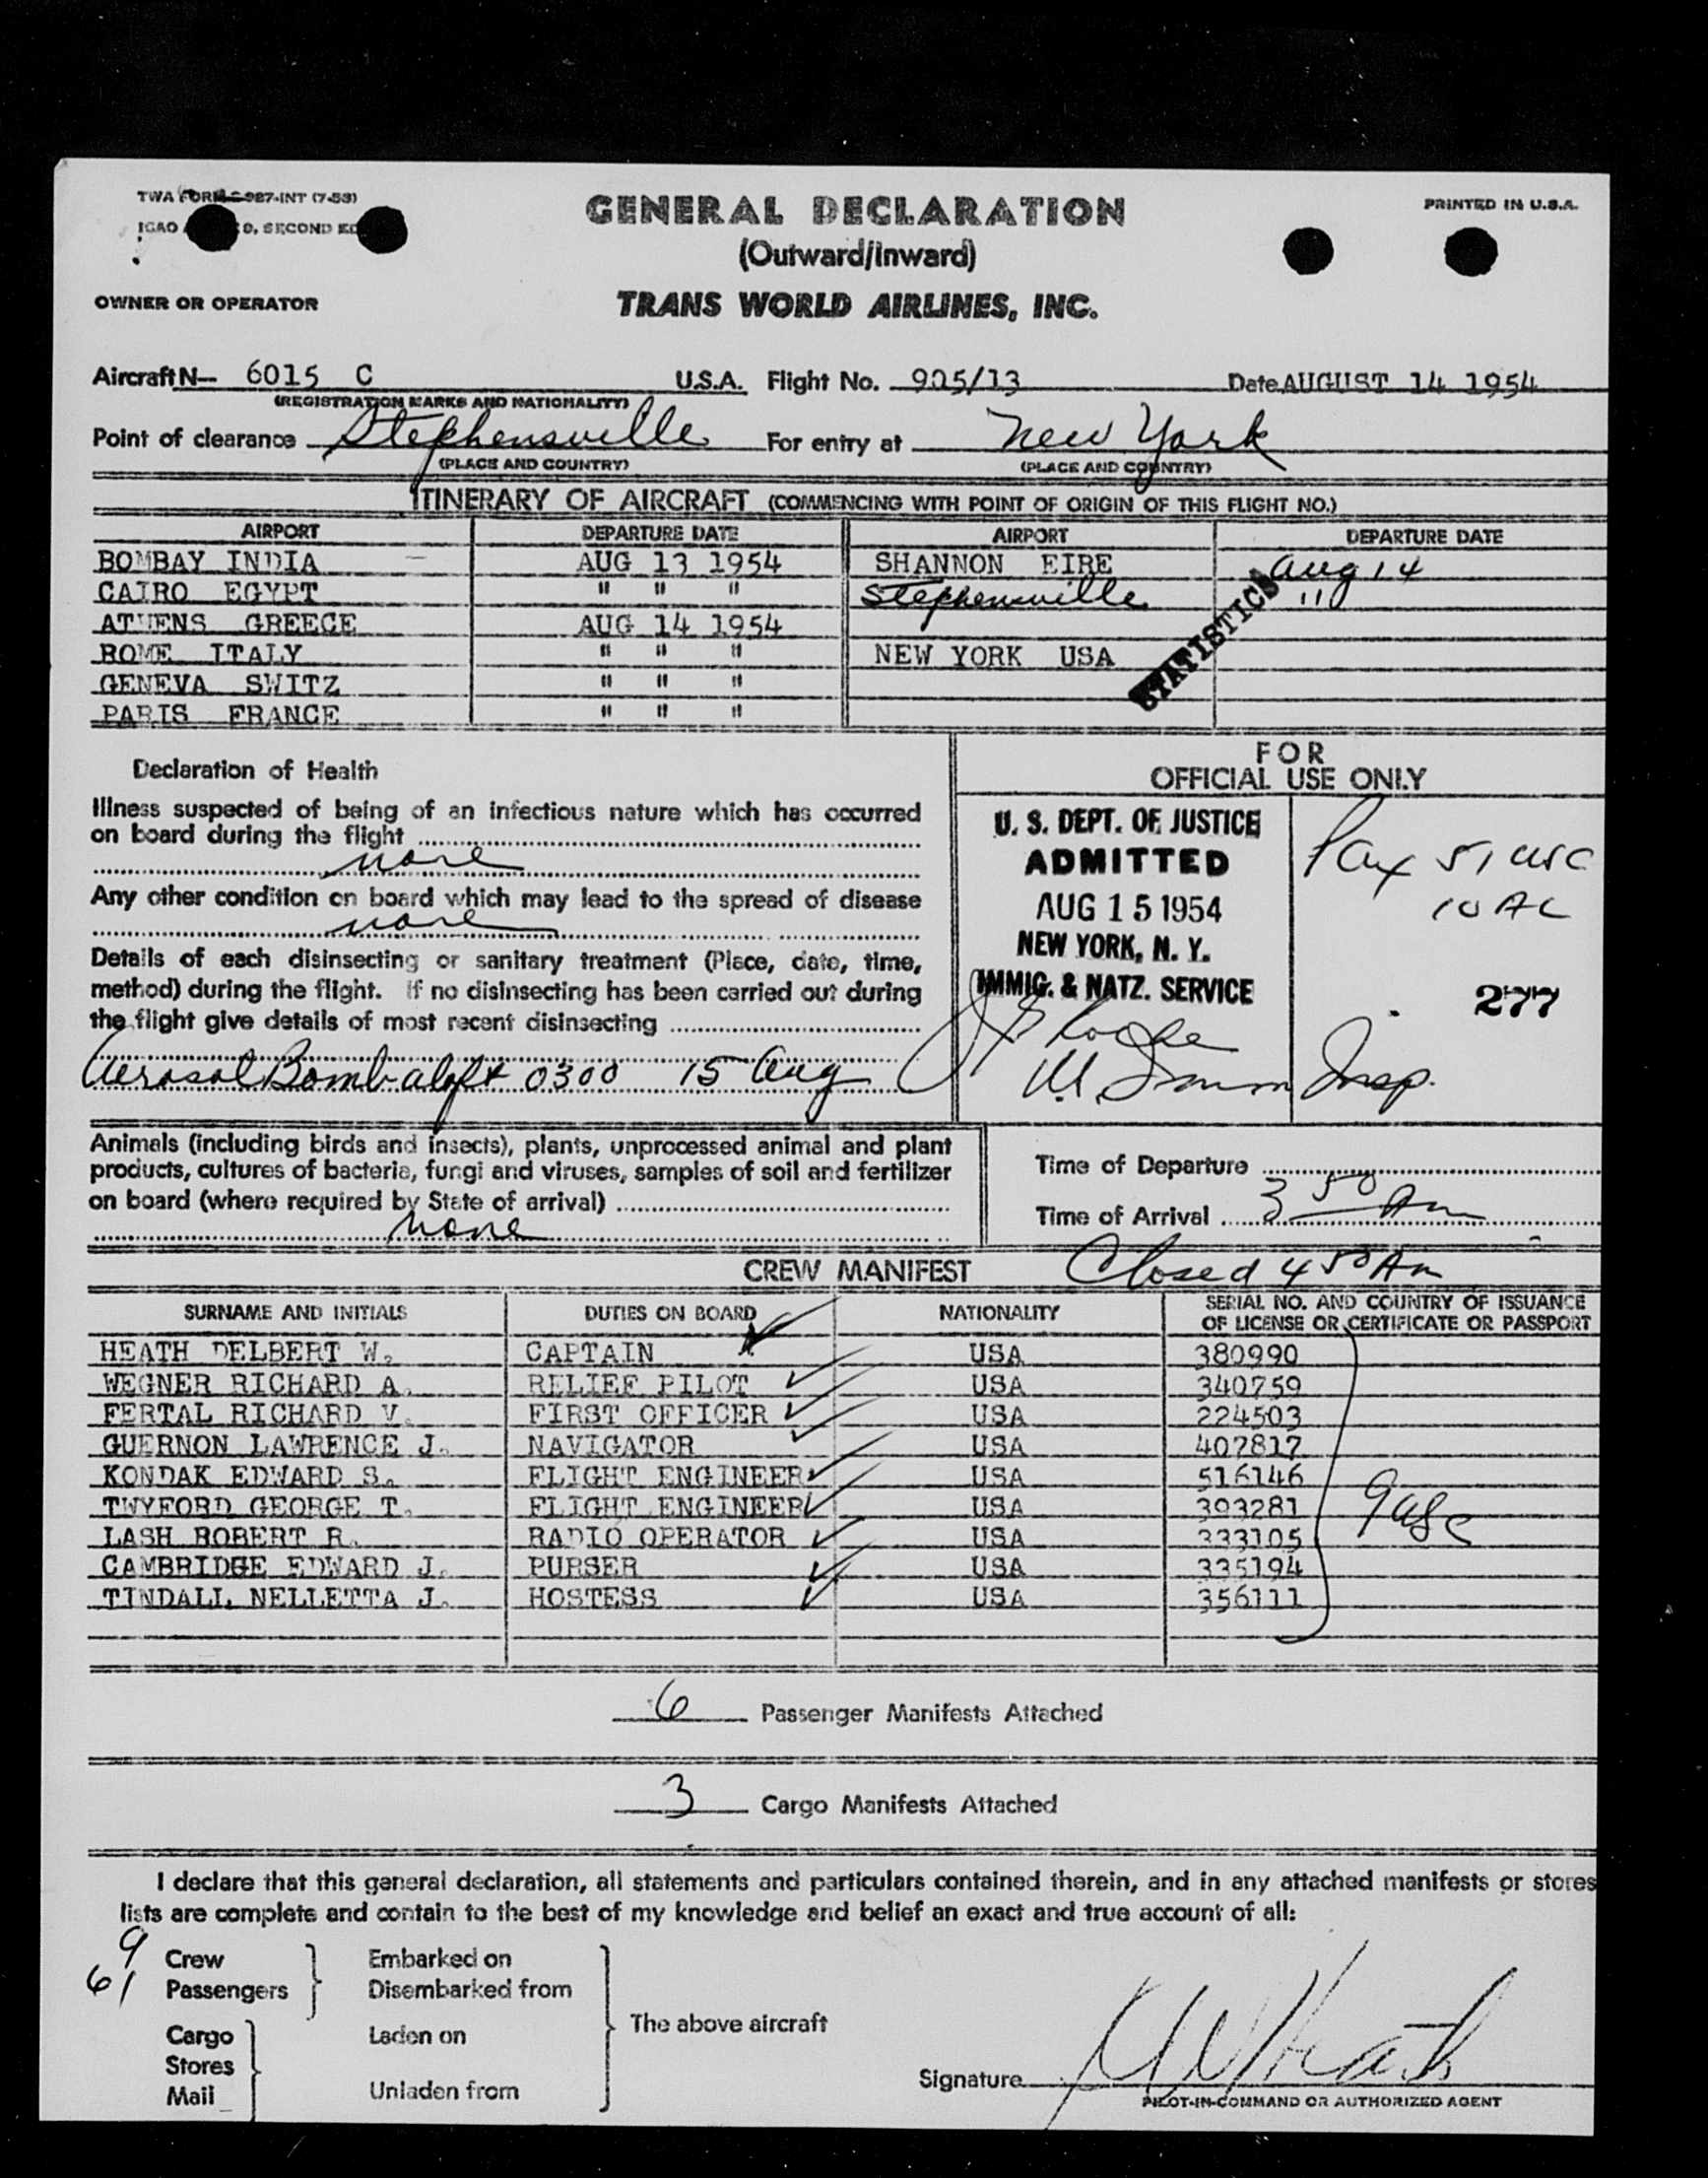 TWA FORM C-987-INT (7-53)
PRINTED IN U.S.A.
ICAO
9, SECOND ED
GENERAL DECLARATION
(Outward/Inward)
OWNER OR OPERATOR
TRANS WORLD AIRLINES, INC.
Aircraft N— 6015 C U.S.A. Flight No. 905/13 Date AUGUST 14 1954
(REGISTRATION MARKS AND NATIONALITY)
Point of clearance Stephensville For entry at New York
(PLACE AND COUNTRY) (PLACE AND COUNTRY)
ITINERARY OF AIRCRAFT (COMMENCING WITH POINT OF ORIGIN OF THIS FLIGHT NO.)
AIRPORT DEPARTURE DATE AIRPORT DEPARTURE DATE
BOMBAY INDIA AUG 13 1954 SHANNON EIRE Aug 14
CAIRO EGYPT " " " Stephenville "
ATHENS GREECE AUG 14 1954
ROME ITALY " " " NEW YORK USA
GENEVA SWITZ " " "
PARIS FRANCE " " "
STATISTICS
Declaration of Health
Illness suspected of being of an infectious nature which has occurred
on board during the flight
none
Any other condition on board which may lead to the spread of disease
none
Details of each disinsecting or sanitary treatment (Place, date, time,
method) during the flight. If no disinsecting has been carried out during
the flight give details of most recent disinsecting
Aerosol Bomb aloft 0300 15 Aug
FOR
OFFICIAL USE ONLY
U. S. DEPT. OF JUSTICE
ADMITTED
AUG 15 1954
NEW YORK, N. Y.
IMMIG. & NATZ. SERVICE
Pax 51 USC
10 AL
277
Insp.
Animals (including birds and insects), plants, unprocessed animal and plant
products, cultures of bacteria, fungi and viruses, samples of soil and fertilizer
on board (where required by State of arrival)
none
Time of Departure
Time of Arrival 3 50 Am
CREW MANIFEST Closed 4 50 Am
SURNAME AND INITIALS DUTIES ON BOARD NATIONALITY SERIAL NO. AND COUNTRY OF ISSUANCE
OF LICENSE OR CERTIFICATE OR PASSPORT
HEATH DELBERT W. CAPTAIN USA 380990
WEGNER RICHARD A. RELIEF PILOT USA 340759
FERTAL RICHARD V. FIRST OFFICER USA 224503
GUERNON LAWRENCE J. NAVIGATOR USA 407817
KONDAK EDWARD S. FLIGHT ENGINEER USA 516146
TWYFORD GEORGE T. FLIGHT ENGINEER USA 393281
9 USC
LASH ROBERT R. RADIO OPERATOR USA 333105
CAMBRIDGE EDWARD J. PURSER USA 335194
TINDALL NELLETTA J. HOSTESS USA 356111
6 Passenger Manifests Attached
3 Cargo Manifests Attached
I declare that this general declaration, all statements and particulars contained therein, and in any attached manifests or stores
lists are complete and contain to the best of my knowledge and belief an exact and true account of all:
9 Crew Embarked on
61 Passengers Disembarked from
Cargo Laden on The above aircraft
Stores
Mail Unladen from
Signature DW Heath
PILOT-IN-COMMAND OR AUTHORIZED AGENT